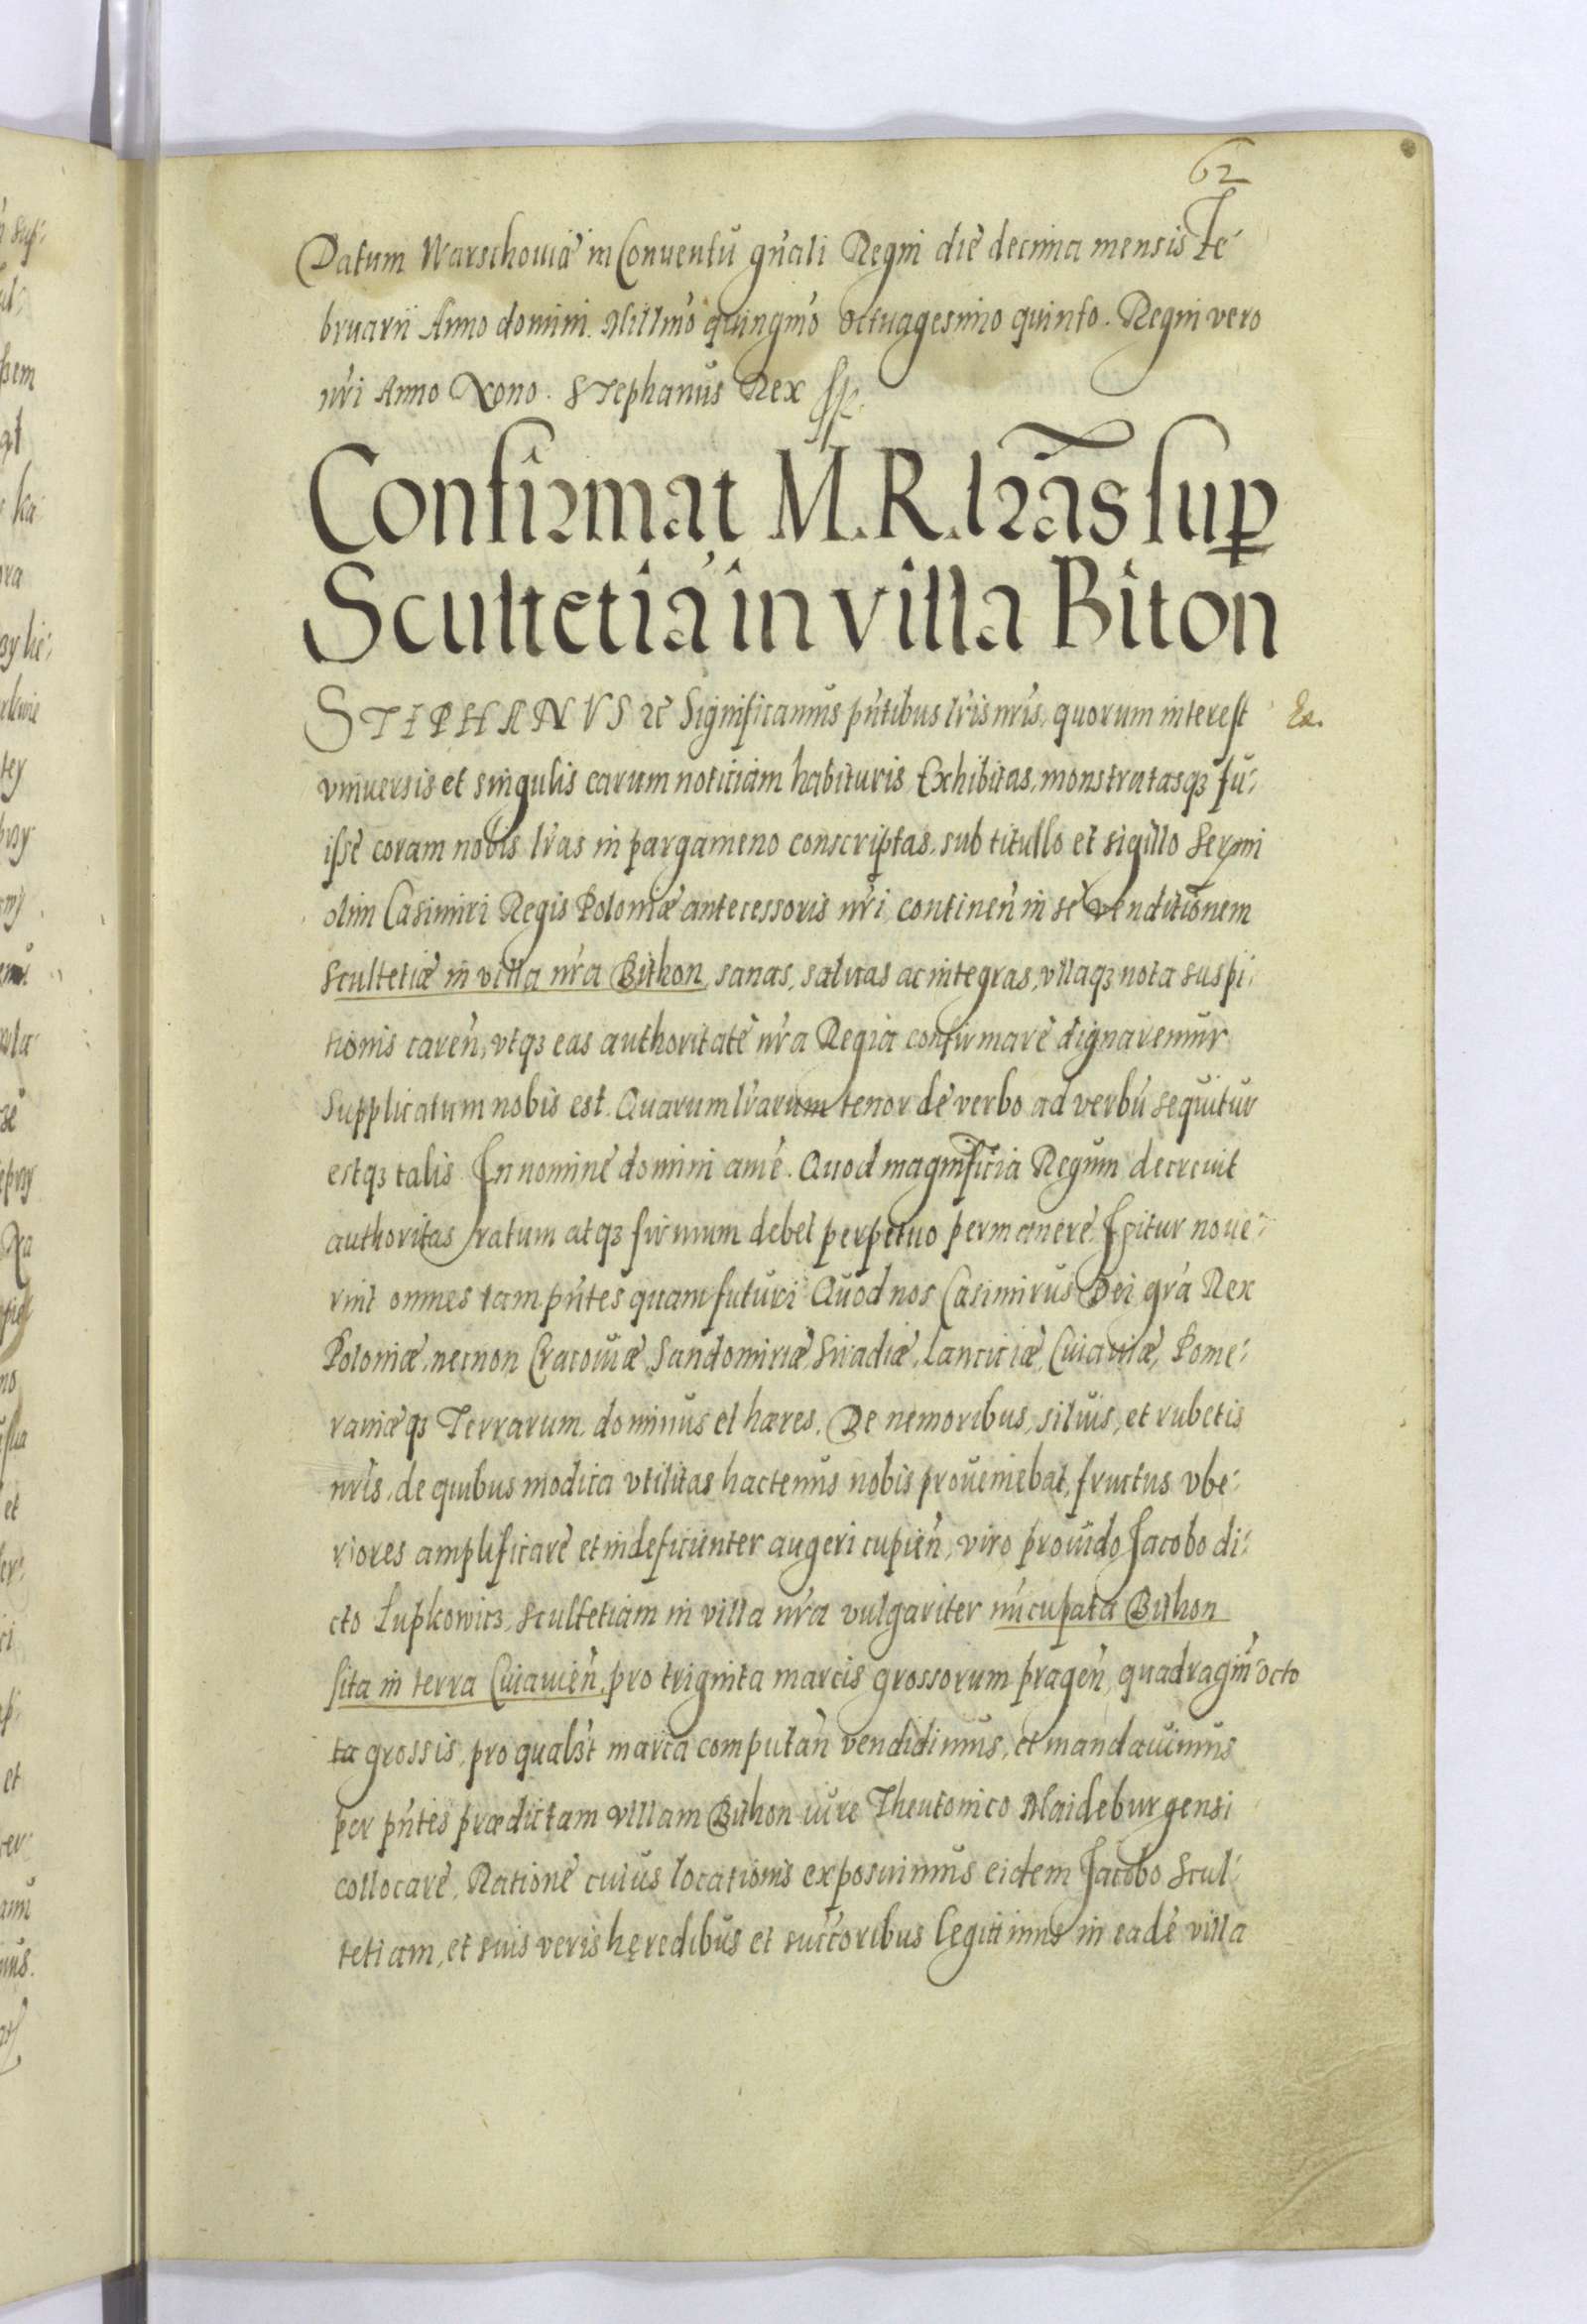 62
Datum Warschouiæ in Conuentu gn̄ali Regni die decima mensis Fe-
bruarii Anno domini. Millmo quingmo octuagesimo quinto. Regni vero
nr̄i Anno Nono. Stephanus Rex ssp.
Confirmat M. R. lr̄as sup
Scultetiā in villa Biton
STEPHANVS &c Significamus pn̄tibus lr̄is nr̄is, quorum interest Ex.
vniuersis et singulis earum noticiam habituris Exhibitas, monstratasqȝ fu-
isse coram nobis lr̄as in pargameno conscriptas, sub titullo et sigillo Sermi
olim Casimiri Regis Poloniæ antecessoris nr̄i, continen̄ in se venditionem
Scultetiæ in villa nr̄a Bithon, sanas, saluas ac integras, vllaqȝ nota suspi-
tionis caren̄, vtqȝ eas authoritate nr̄a Regia confirmare dignaremur
supplicatum nobis est. Quarum lr̄arum tenor de verbo ad verbū sequitur
estqȝ talis. In nomine domini amē. Quod magnificia Regum decreuit
authoritas ratum atqȝ firmum debet perpetuo permanere. Igitur noue-
rint omnes tam pn̄tes quam futuri Quod nos Casimirus Dei gr̄a Rex
Poloniæ, necnon Cracouiæ, Sandomiriæ, Siradiæ, Lanciciæ, Cuiauiæ, Pome-
raniæqȝ Terrarum dominus et hæres. De nemoribus, siluis, et rubetis
nr̄is, de quibus modica vtilitas hactenus nobis proueniebat, fructus vbe-
riores amplificare et indeficienter augeri cupien̄, viro prouido Jacobo di-
cto Łupkowicȝ, scultetiam in villa nr̄a vulgariter nūcupata Bithon
sita in terra Cuiauien̄, pro triginta marcis grossorum pragen̄, quadragin̄ octo
ta grossis, pro qualȝt marca computan̄ vendidimus, et mandauimus
per pn̄tes prædictam villam Bithon iure Theutonico Maideburgensi
collocare. Ratione cuius locationis exposuimus eidem Jacobo Scul-
tetiam, et suis veris hęredibus et succ̄oribus legitimis in eadē villa